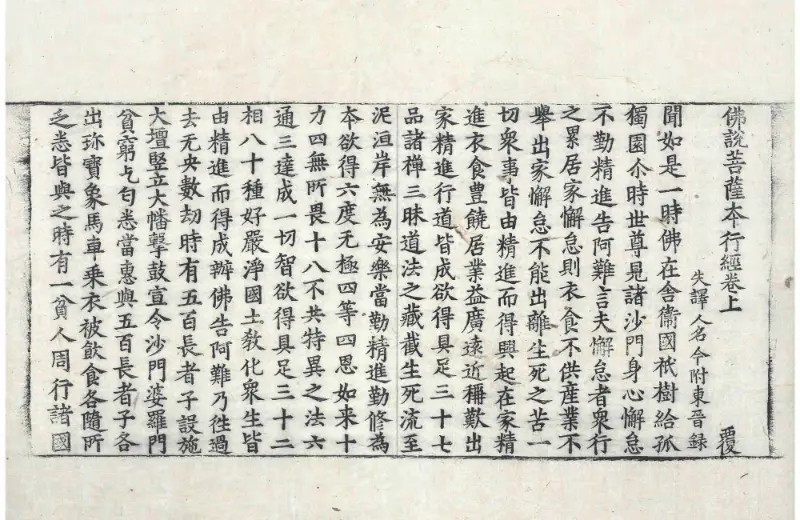 佛說菩薩本行經卷上　　覆
失譯人名今附東晉録
聞如是一時佛在舎衛國祇樹給孤
獨園尒時世尊見諸沙門身心懈怠
不勤精進告阿難言夫懈怠者衆行
之累居家懈怠則衣食不供産業不
舉出家懈怠不能出離生死之苦一
切衆事皆由精進而得興起在家精
進衣食豊饒居業益廣遠近稱歎出
家精進行道皆成欲得具足三十七
品諸禪三昧道法之藏截生死流至
泥洹岸無為安樂當勤精進勤修為
本欲得六度无極四等四恩如来十
力四無所畏十八不共特異之法六
通三達成一切智欲得具足三十二
相八十種好嚴淨國土教化衆生皆
由精進而得成辦佛告阿難乃徃過
去无央數劫時有五百長者子設施
大壇竪立大幡擊鼓宣令沙門婆羅門
貧窮乞匂悉當惠與五百長者子各
出珎寶象馬車乗衣被飲食各隨所
之悉皆與之時有一貧人周行諸國